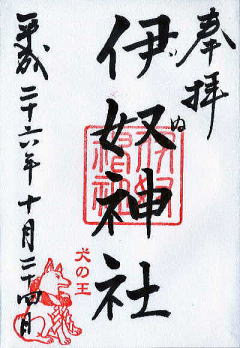 奉拝
伊奴神社
いぬ
伊奴神社
犬の王
平成二十六年十月二十四日